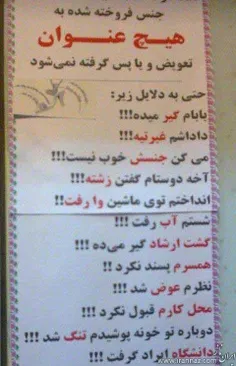 جنس فروخته شده به
هیچ عنوان
تعویض و یا پس گرفته نمی‌شود
حتی به دلایل زیر:
بابام گیر میده!!!
داداشم غیرتیه!!!
می گن جنسش خوب نیست!!!
آخه دوستام گفتن زشته!!!
انداختم توی ماشین وا رفت!!
شستم آب رفت !!!
گشت ارشاد گیر می‌ده !!!
همسرم پسند نکرد !!
نظرم عوض شد !!!
محل کارم قبول نکرد !!!
دوباره تو خونه پوشیدم تنگ شد !!!
دانشگاه ایراد گرفت !!!